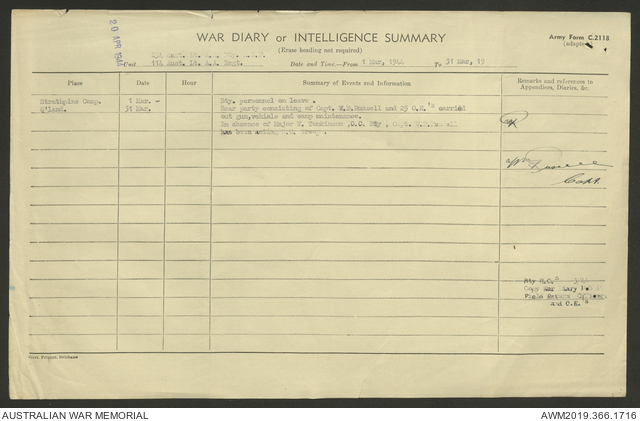 20 APR 1944
WAR DIARY or INTELLIGENCE SUMMARY
Army Form C.2118
(Erase heading not required)
(adapted)
Aust. Lt. A.A.
Unit 114 Aust. Lt. A.A. Regt.
Date and Time—From 1 Mar, 1944 To 31 Mar, 19
Place
Date
Hour
Summary of Events and Information
Remarks and references to
Appendices, Diaries, &c.
Strathpine Camp. 1 Mar. - Bty. personnel on leave.
Q'land. 31 Mar. Rear party consisting of Capt. W.B. and 25 O.R.'s carried
out gun, vehicle and camp maintenance.
In absence of Major W. Tomkinson, O.C. Bty, Capt. W.B.
has been acting
Capt.
Bty R.O.s
Copy War Diary
Field Return Officers
and O.R.s
Govt. Printer, Brisbane
AUSTRALIAN WAR MEMORIAL
AWM2019.366.1716